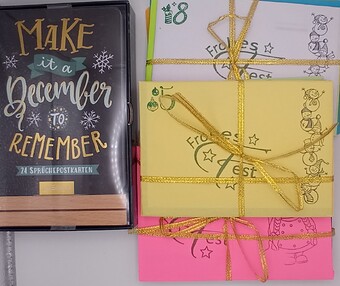 MAKE
it a
December
TO
REMEMBER
24 SPRÜCHEPOSTKARTEN
8
Frohes
Fest
Frohes
Fest
Fest